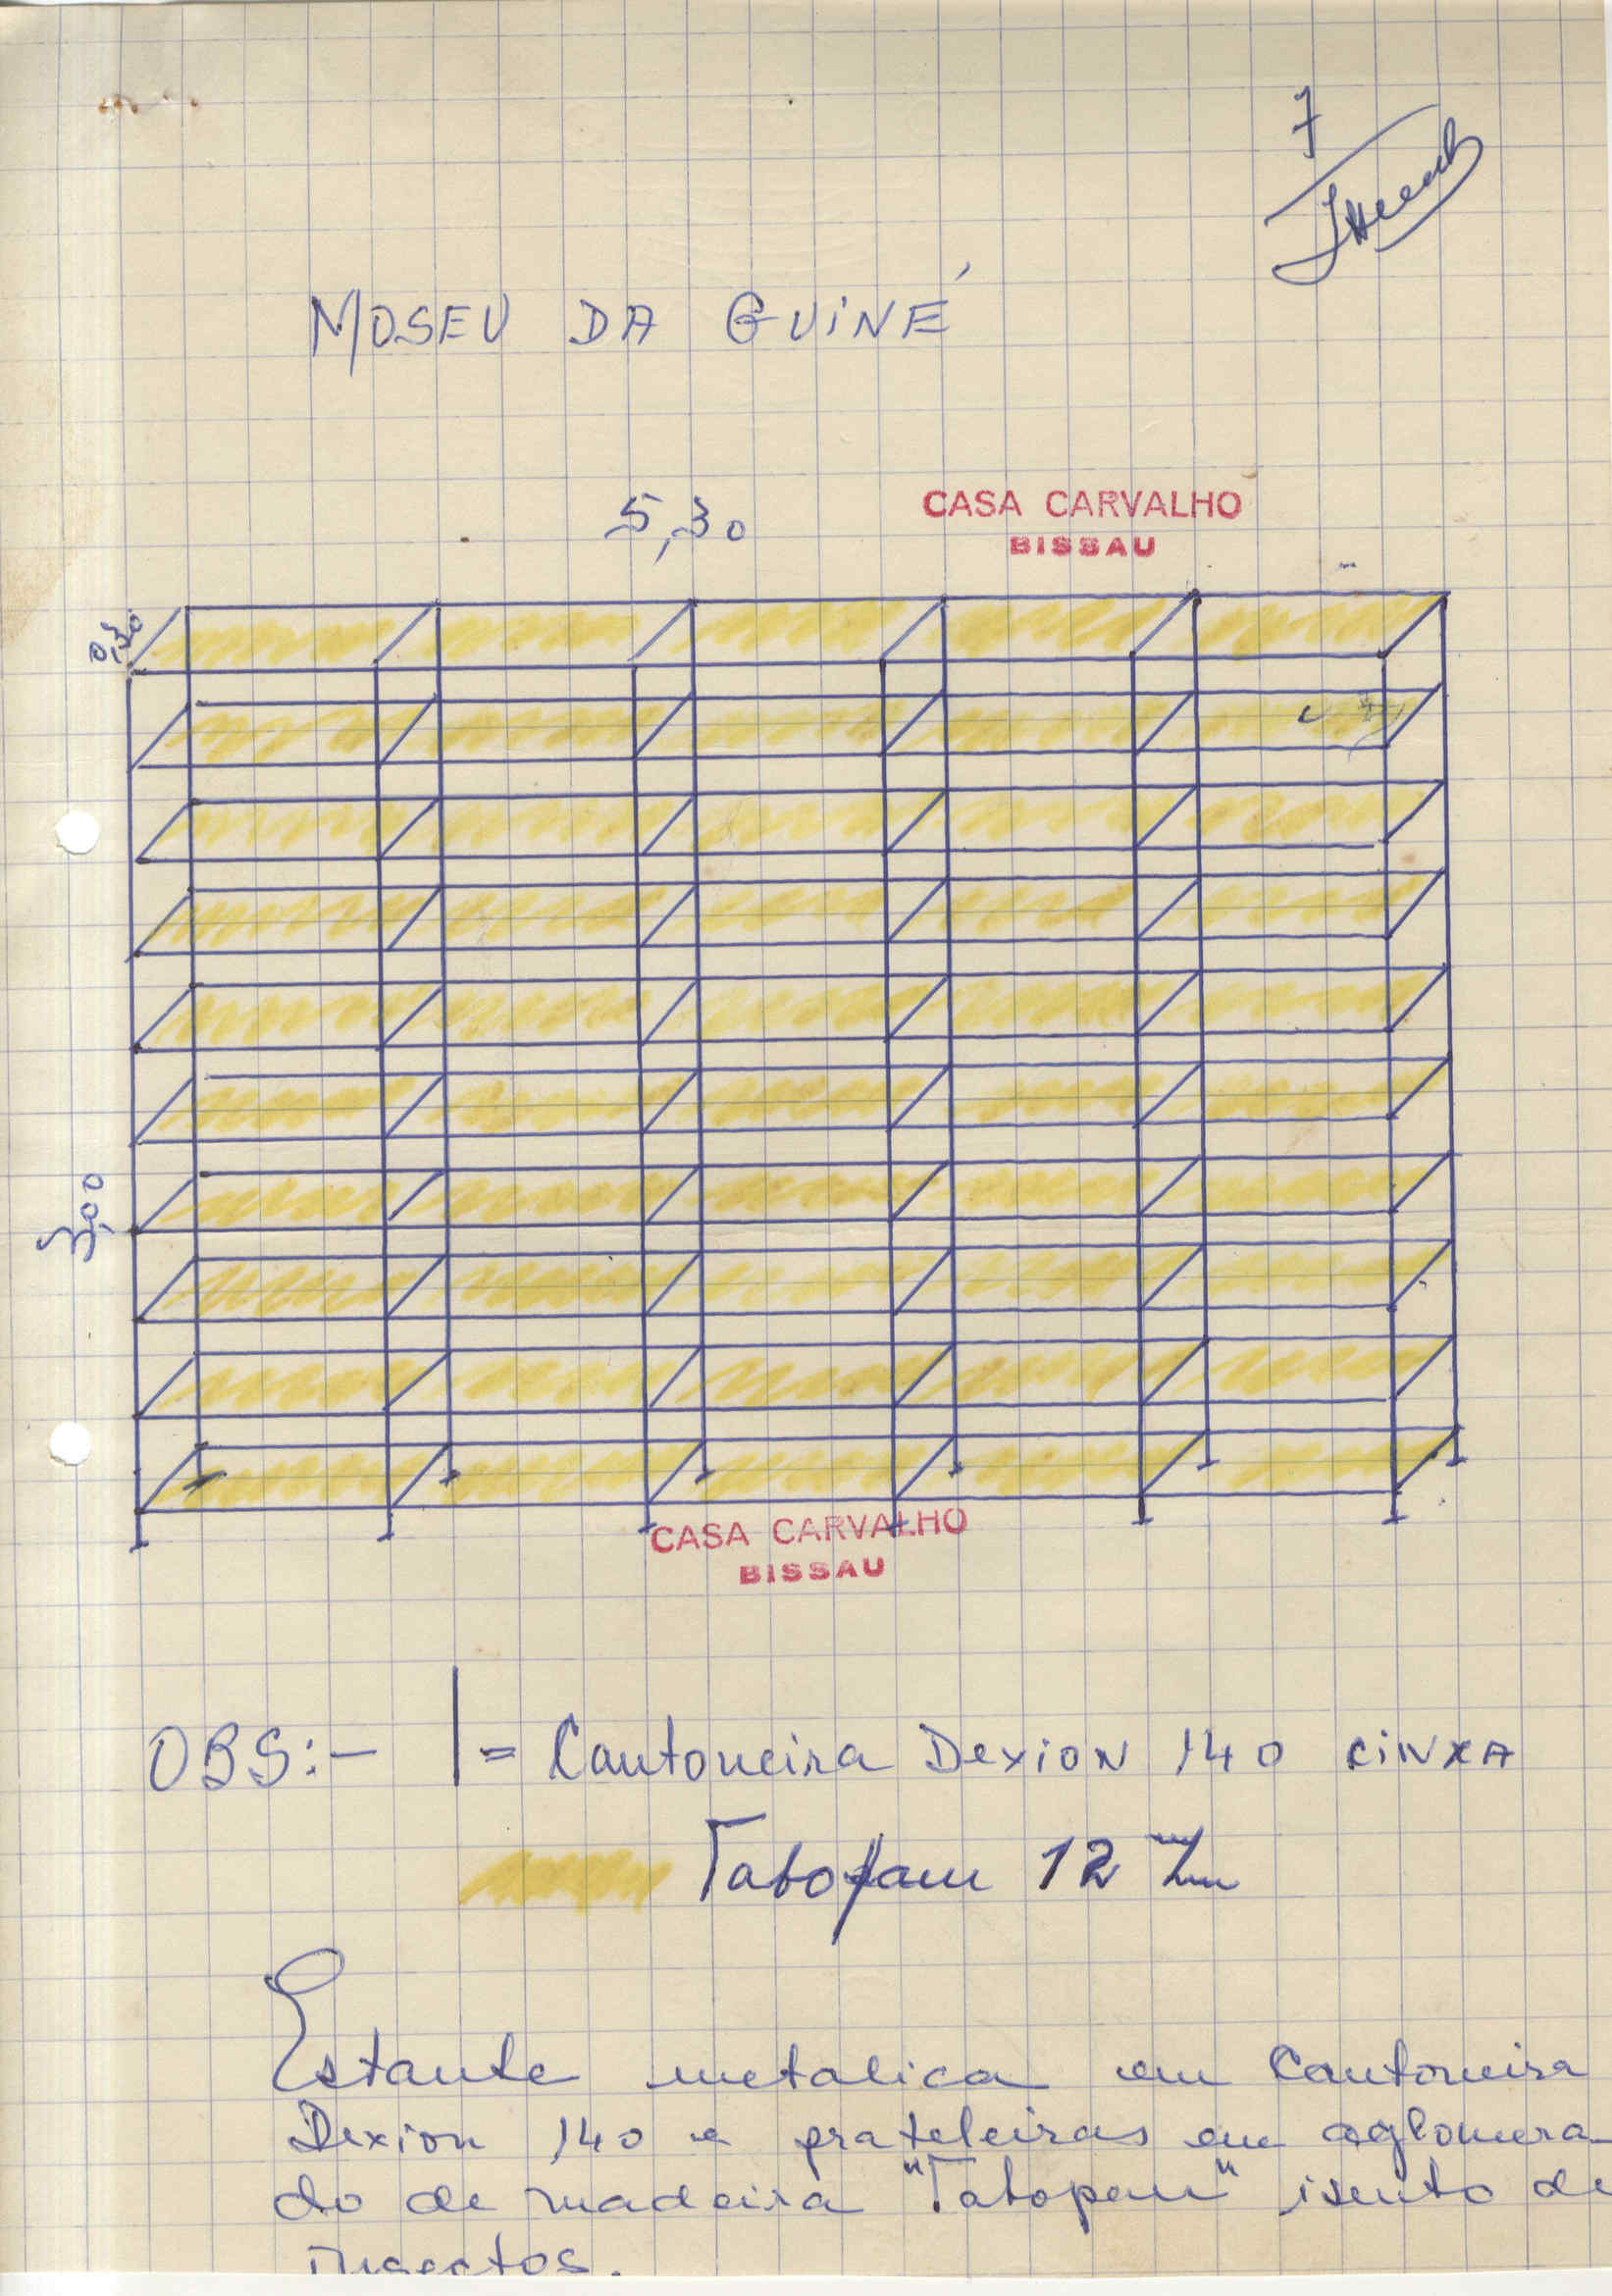 7
MUSEU DA GUINÉ
5,30
CASA CARVALHO
BISSAU
0,30
3,00
CASA CARVALHO
BISSAU
OBS:- | = Cantoneira DEXION 140 CINXA
Tabopam 12 m/m
Estante metalica em Cantoneira
Dexion 140 e prateleiras em aglomera-
do de madeira "Tabopan" isento de
insectos.